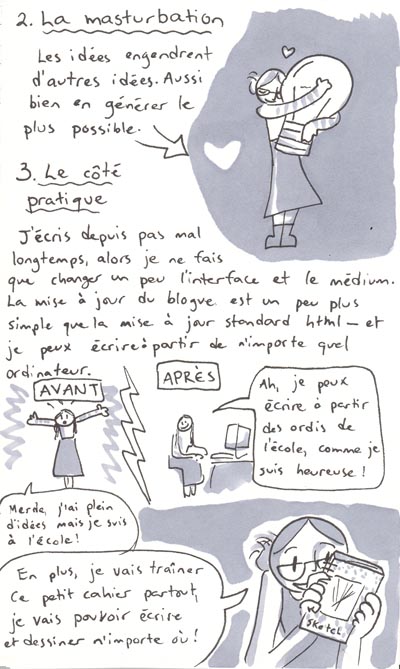 2. La masturbation
Les idées engendrent
d'autres idées. Aussi
bien en générer le
plus possible.
3. Le côté
pratique
J'écris depuis pas mal
longtemps, alors je ne fais
que changer un peu l'interface et le médium.
La mise à jour du blogue est un peu plus
simple que la mise à jour standard html — et
je peux écrire à partir de n'importe quel
ordinateur.
AVANT
APRÈS
Ah, je peux
écrire à partir
des ordis de
l'école, comme je
suis heureuse!
Merde, j'ai plein
d'idées mais je suis
à l'école!
En plus, je vais traîner
ce petit cahier partout,
je vais pouvoir écrire
et dessiner n'importe où!
Sketch